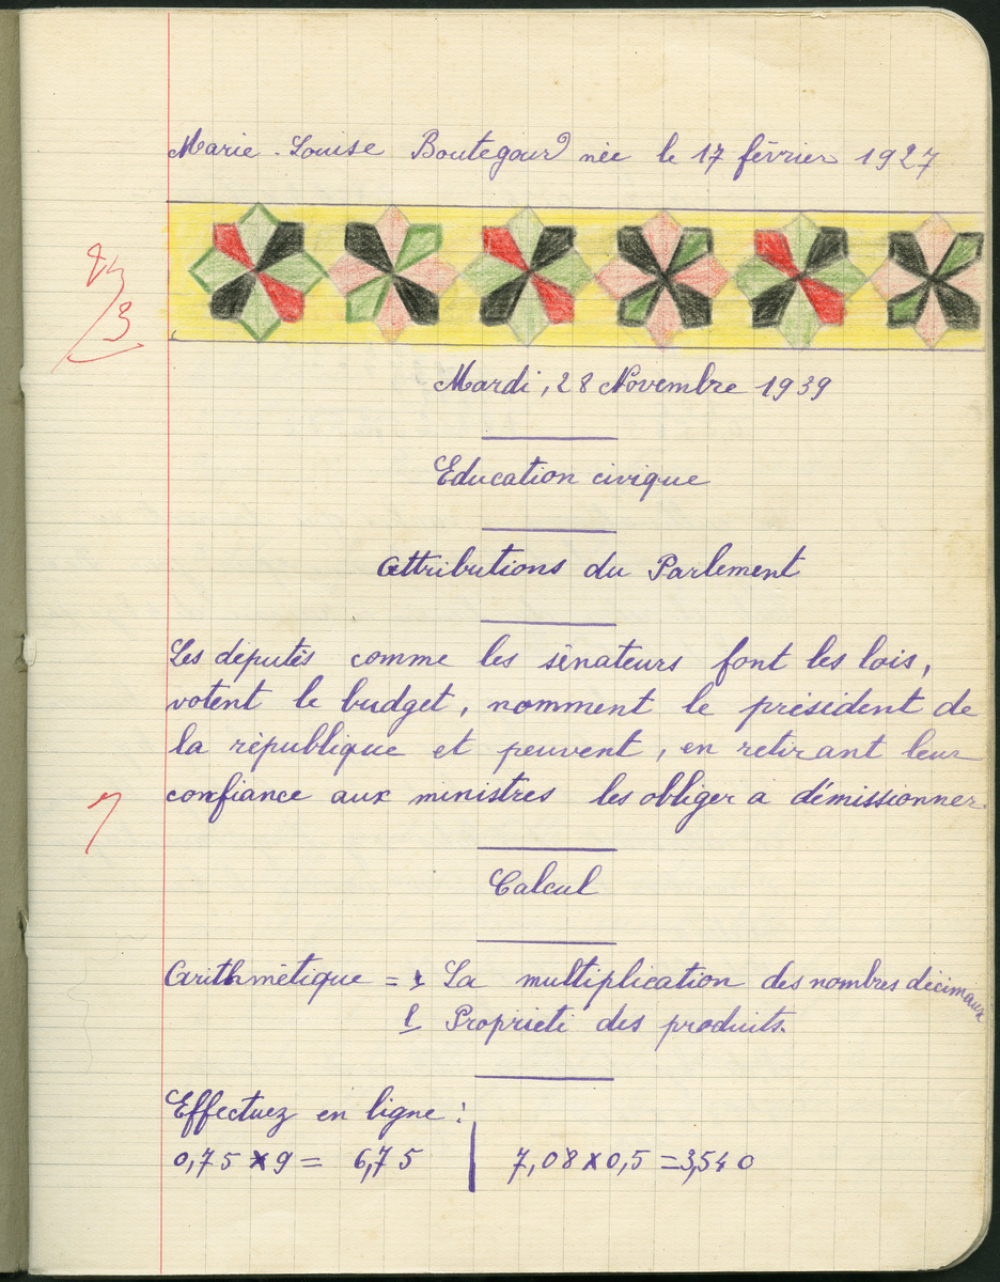 Marie-Louise Boutegourd née le 17 février 1927
Mardi, 28 Novembre 1939
Education civique
Attributions du Parlement
Les députés comme les sénateurs font les lois,
votent le budget, nomment le président de
la république et peuvent, en retirant leur
confiance aux ministres les obliger a démissionner
Calcul
Arithmétique = La multiplication des nombres décimaux
Propriété des produits.
Effectuez en ligne :
0,75 x 9 = 6,75 | 7,08 x 0,5 = 3,540